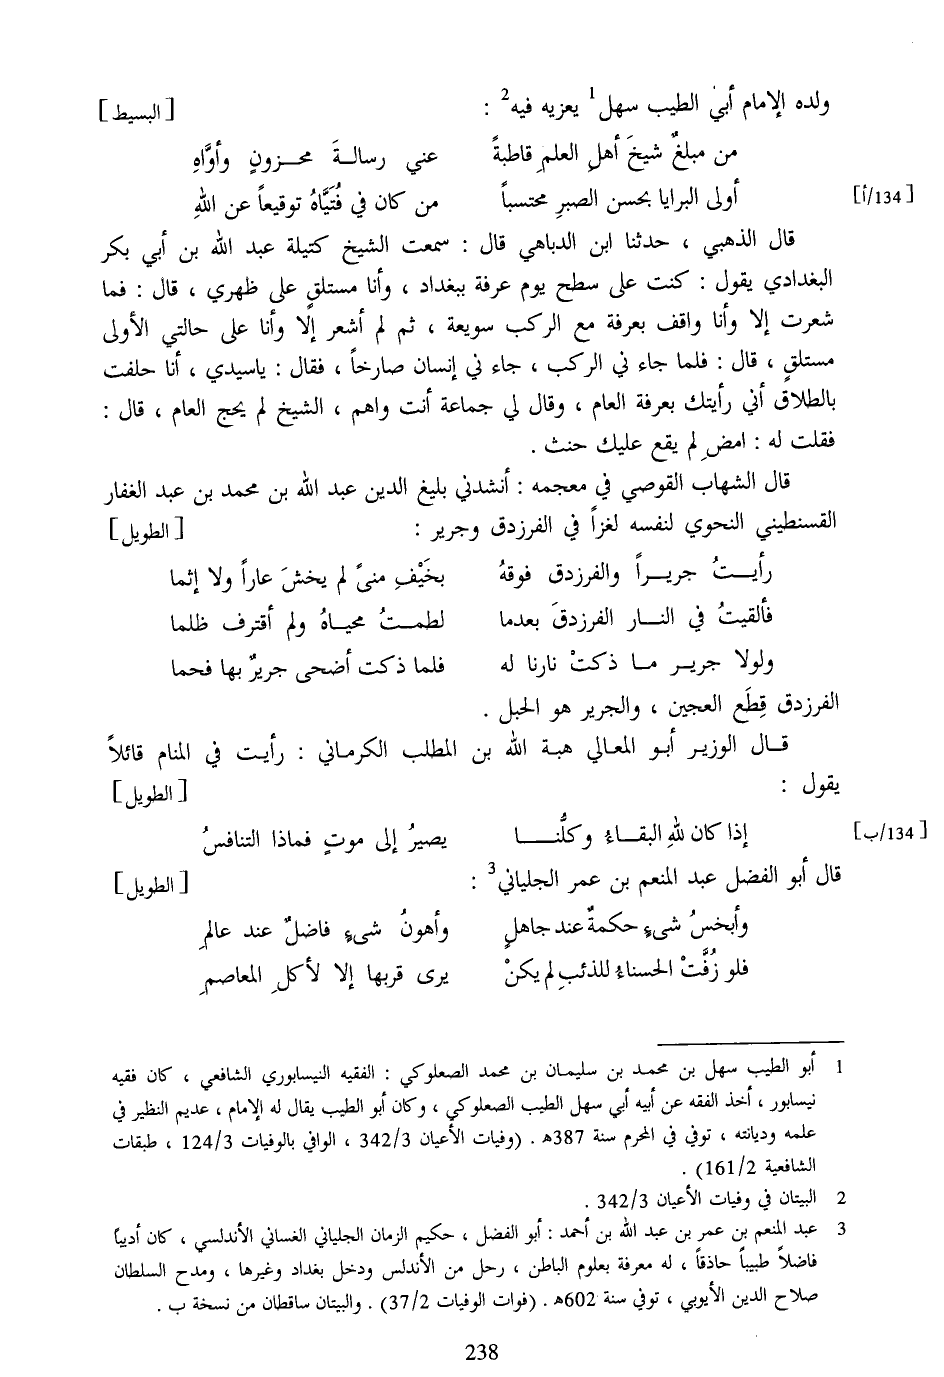 ولده الإمام أبي الطيب سهل1 يعزيه فيه2 : [البسيط]
من مبلغٌ شيخَ أهلِ العلمِ قاطبةً عني رسالـةَ محـزونٍ وأوَّاهِ
[134/أ] أولى البرايا بحسن الصبرِ محتسباً من كان في فُتَيَّاهُ توقيعاً عن اللهِ
قال الذهبي ، حدثنا ابن الدباهي قال : سمعت الشيخ كتيلة عبد الله بن أبي بكر
البغدادي يقول : كنت على سطح يوم عرفة ببغداد ، وأنا مستلقٍ على ظهري ، قال : فما
شعرت إلا وأنا واقف بعرفة مع الركب سويعة ، ثم لم أشعر إلّا وأنا على حالتي الأولى
مستلقٍ ، قال : فلما جاء في الركب ، جاء في إنسان صارخاً ، فقال : ياسيدي ، أنا حلفت
بالطلاق أني رأيتك بعرفة العام ، وقال لي جماعة أنت واهم ، الشيخ لم يحج العام ، قال :
فقلت له : امضِ لم يقع عليك حنث .
قال الشهاب القوصي في معجمه : أنشدني بليغ الدين عبد الله بن محمد بن عبد الغفار
القسنطيني النحوي لنفسه لغزاً في الفرزدق وجرير : [الطويل]
رأيـتُ جريـراً والفرزدق فوقهُ بخَيْفِ منىً لم يخشَ عاراً ولا إثما
فألقيتُ في النـار الفرزدقَ بعدما لطمـتُ محيـاهُ ولم أقترف ظلما
ولولا جرير مـا ذكتْ نارنا له فلما ذكت أضحى جريرٌ بها فحما
الفرزدق قِطَع العجين ، والجرير هو الحبل .
قـال الوزير أبـو المعـالي هبـة الله بن المطلب الكرماني : رأيت في المنام قائلاً
يقول : [الطويل]
[134/ب] إذا كان للهِ البقـاءُ وكلُّنـا يصيرُ إلى موتٍ فماذا التنافسُ
قال أبو الفضل عبد المنعم بن عمر الجلياني3 : [الطويل]
وأبخسُ شيءٍ حكمةٌ عند جاهلٍ وأهونُ شيءٍ فاضلٌ عند عالمِ
فلو زُفَّتْ الحسناءُ للذئبِ لم يكنْ يرى قربها إلا لأكلِ المعاصمِ
1 أبو الطيب سهل بن محمد بن سليمان بن محمد الصعلوكي : الفقيه النيسابوري الشافعي ، كان فقيه
نيسابور ، أخذ الفقه عن أبيه أبي سهل الطيب الصعلوكي ، وكان أبو الطيب يقال له الإمام ، عديم النظير في
علمه وديانته ، توفي في المحرم سنة 387هـ . (وفيات الأعيان 342/3 ، الوافي بالوفيات 124/3 ، طبقات
الشافعية 161/2) .
2 البيتان في وفيات الأعيان 342/3 .
3 عبد المنعم بن عمر بن عبد الله بن أحمد : أبو الفضل ، حكيم الزمان الجلياني الغساني الأندلسي ، كان أديباً
فاضلاً طبيباً حاذقاً ، له معرفة بعلوم الباطن ، رحل من الأندلس ودخل بغداد وغيرها ، ومدح السلطان
صلاح الدين الأيوبي ، توفي سنة 602هـ . (فوات الوفيات 37/2) . والبيتان ساقطان من نسخة ب .
238